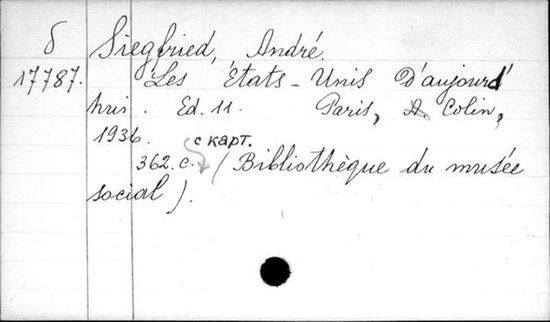 б Siegfried, André.
17787. Les États-Unis D'aujourd'
hui. Ed. 11. Paris, A. Colin,
1936. с карт.
362.с. (Bibliothèque du musée
social).